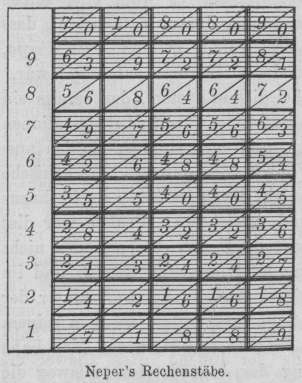 7/0 1/0 8/0 8/0 9/0
9 6/3 9 7/2 7/2 8/1
8 5/6 8 6/4 6/4 7/2
7 4/9 7 5/6 5/6 6/3
6 4/2 6 4/8 4/8 5/4
5 3/5 5 4/0 4/0 4/5
4 2/8 4 3/2 3/2 3/6
3 2/1 3 2/4 2/4 2/7
2 1/4 2 1/6 1/6 1/8
1 7 1 8 8 9
Neper's Rechenstäbe.